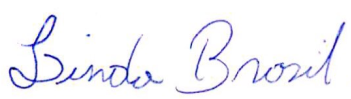 Linda Brasil